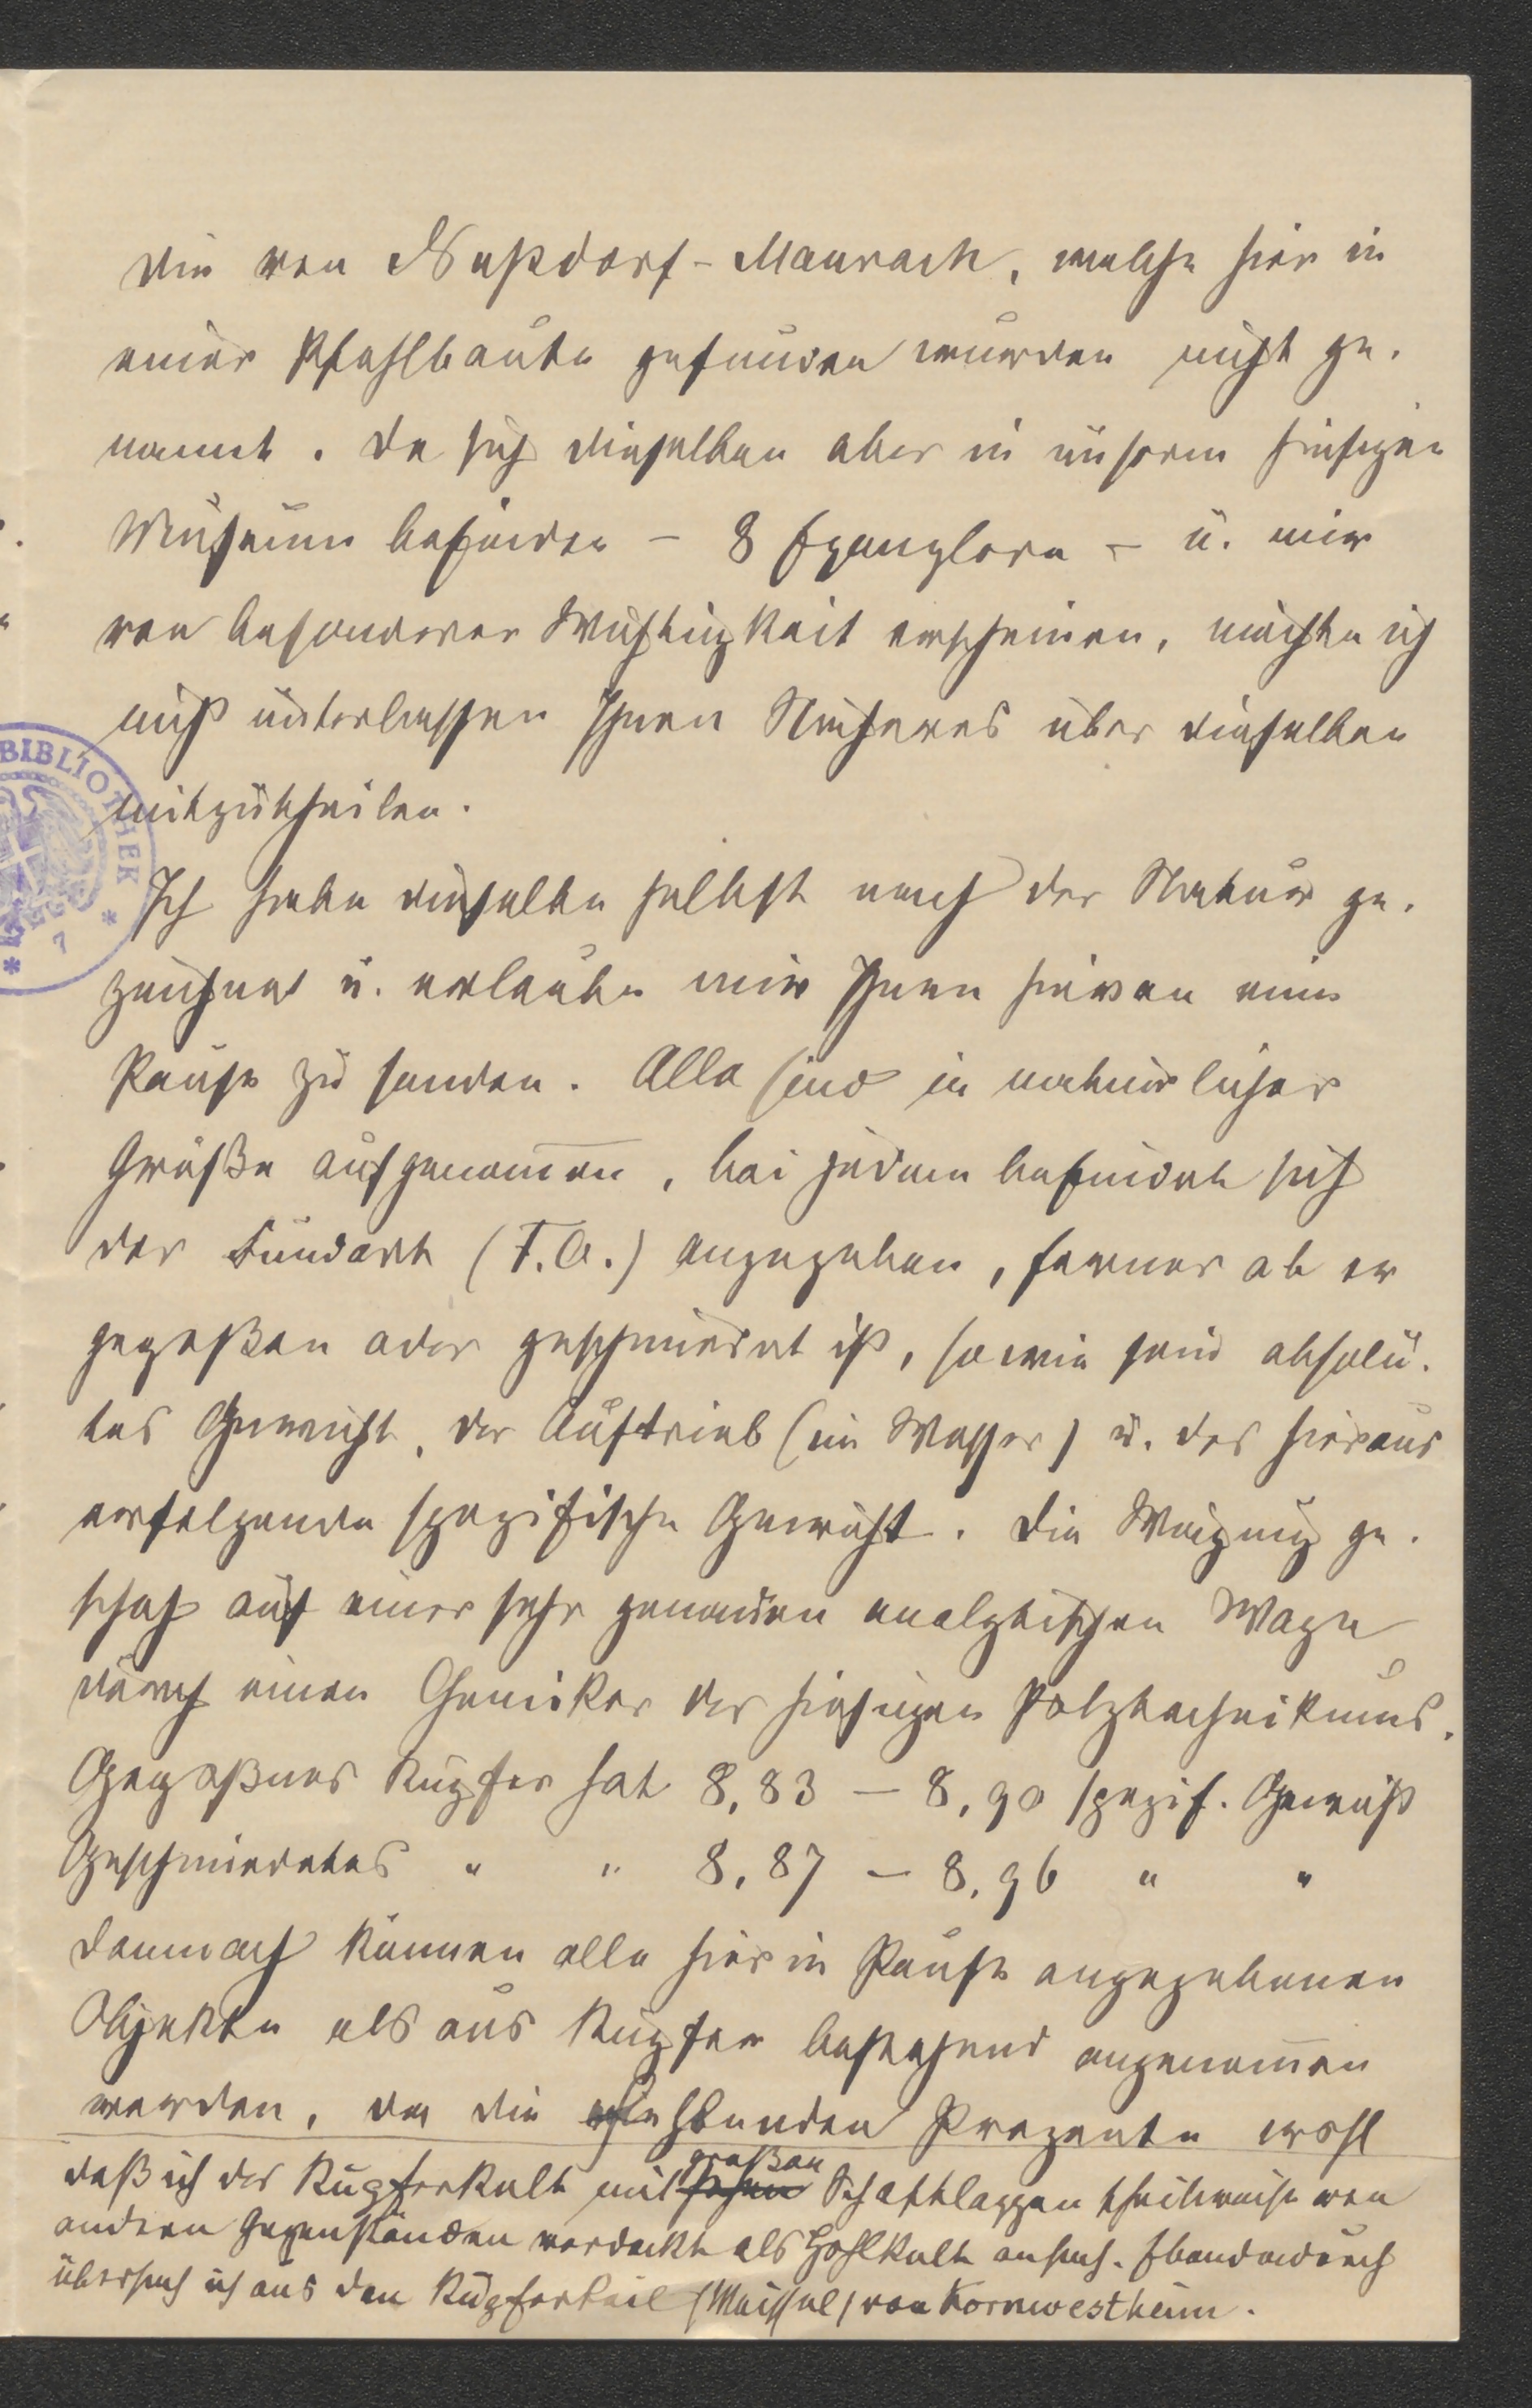 die von Nußdorf-Maurach, welche hier in
einer Pfahlbaute gefunden wurden nicht ge-
nannt. Da sich dieselben aber in unserm hiesigen
Museum befinden – 8 Exemplare – u. mir
von besonderer Wichtigkeit erscheinen, möchte ich
nicht unterlassen Ihnen Näheres über dieselben
mitzutheilen.
BIBLIOTHEK
7
Ich habe dieselbe selbst nach der Natur ge-
zeichnet u. erlaube mir Ihnen hievon eine
Pause zu senden. Alle sind in natürlicher
Größe aufgenom̅en, bei jedem befindet sich
der Fundort (F.O.) angegeben, ferner ob er
gegoßen oder geschmiedet ist, sowie sein absolu-
tes Gewicht, der Auftrieb (im Wasser) u. das hieraus
erfolgende spezifische Gewicht. Die Wägung ge-
schah auf einer sehr genauen analytischen Wage
durch einen Chemiker des hiesigen Polytechnikums.
Gegoßnes Kupfer hat 8,83 – 8,90 spezif. Gewicht
Geschmiedetes " " 8,87 – 8,96 " "
Demnach können alle hier in Pause angegebenen
Objekte als aus Kupfer bestehend angenom̅en
werden, da die fehlenden Prozente wohl
daß ich der Kupferkelt mit großen Schaftlappen theilweise von
andern Gegenständen verdeckt als Hohlkelt ansah. Ebendadurch
übersah ich aus den Kupferkeil (Meissel) von Kornwestheim.